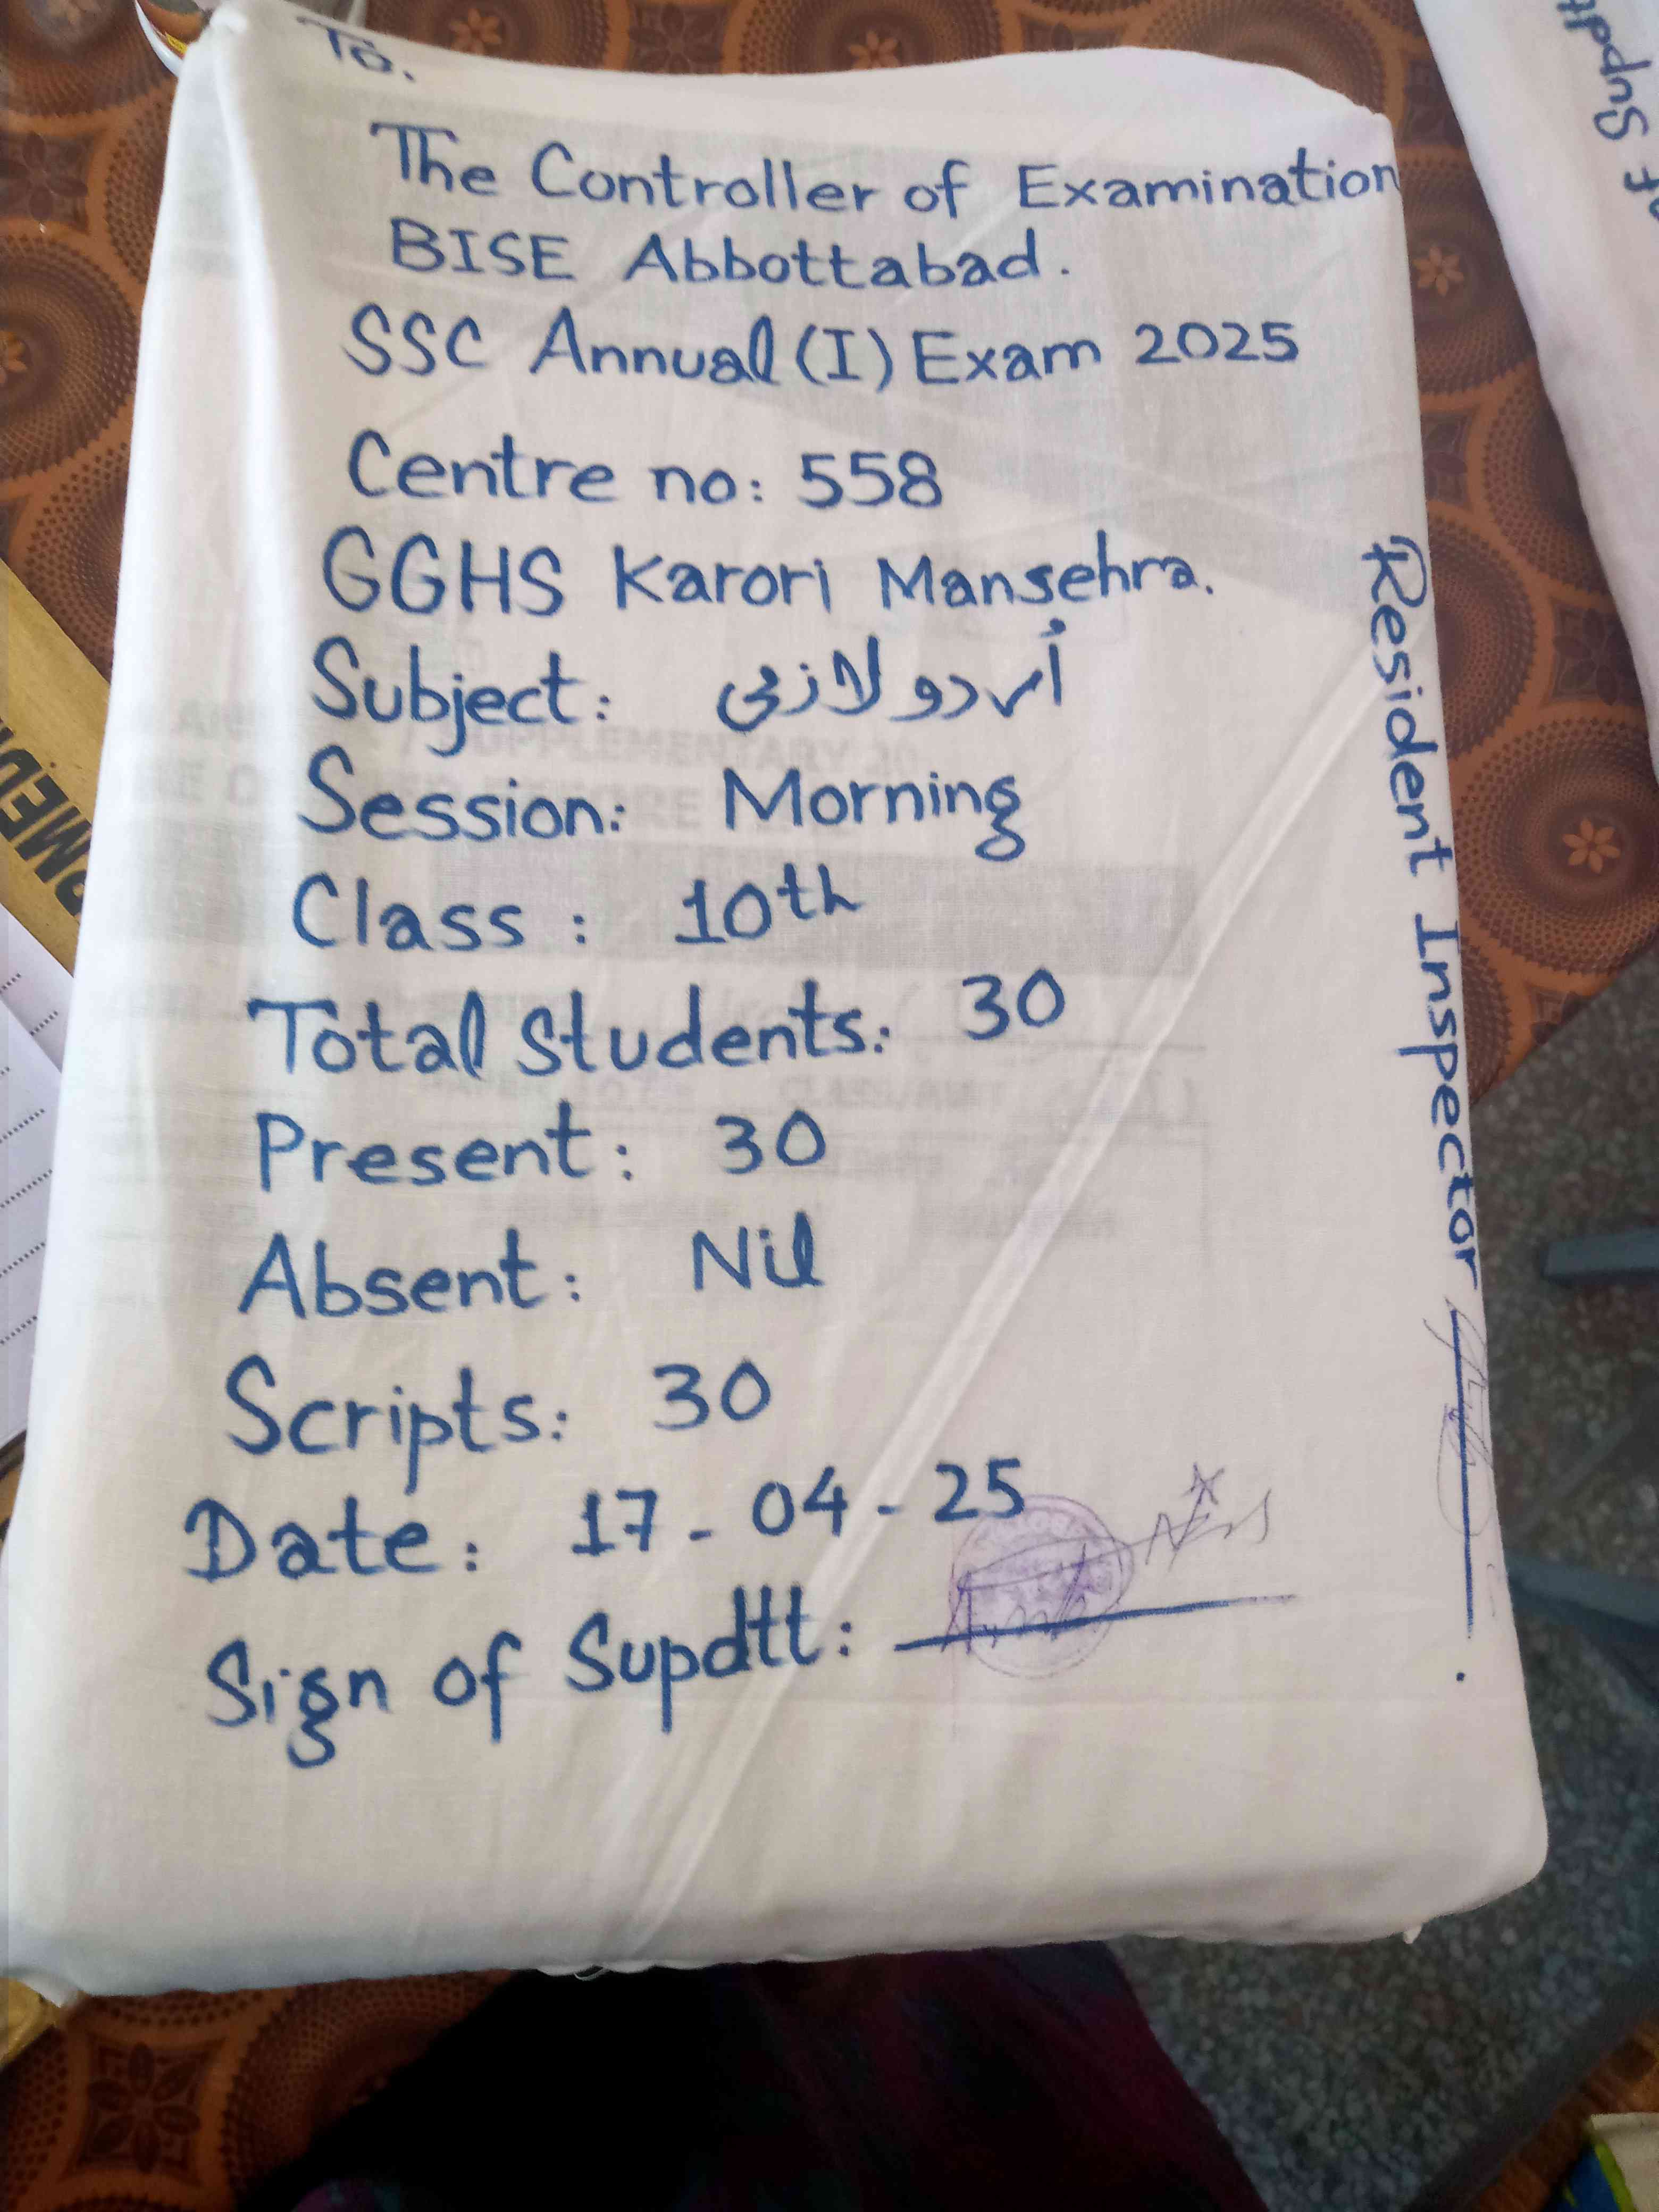 To.
The Controller of Examination
BISE Abbottabad.
SSC Annual (I) Exam 2025
Centre no: 558
GGHS Karori Mansehra.
Subject: اُردو لازمی
Session: Morning
Class: 10th
Total Students: 30
Present: 30
Absent: Nil
Scripts: 30
Date: 17-04-25
Sign of Supdtt:
Resident Inspector